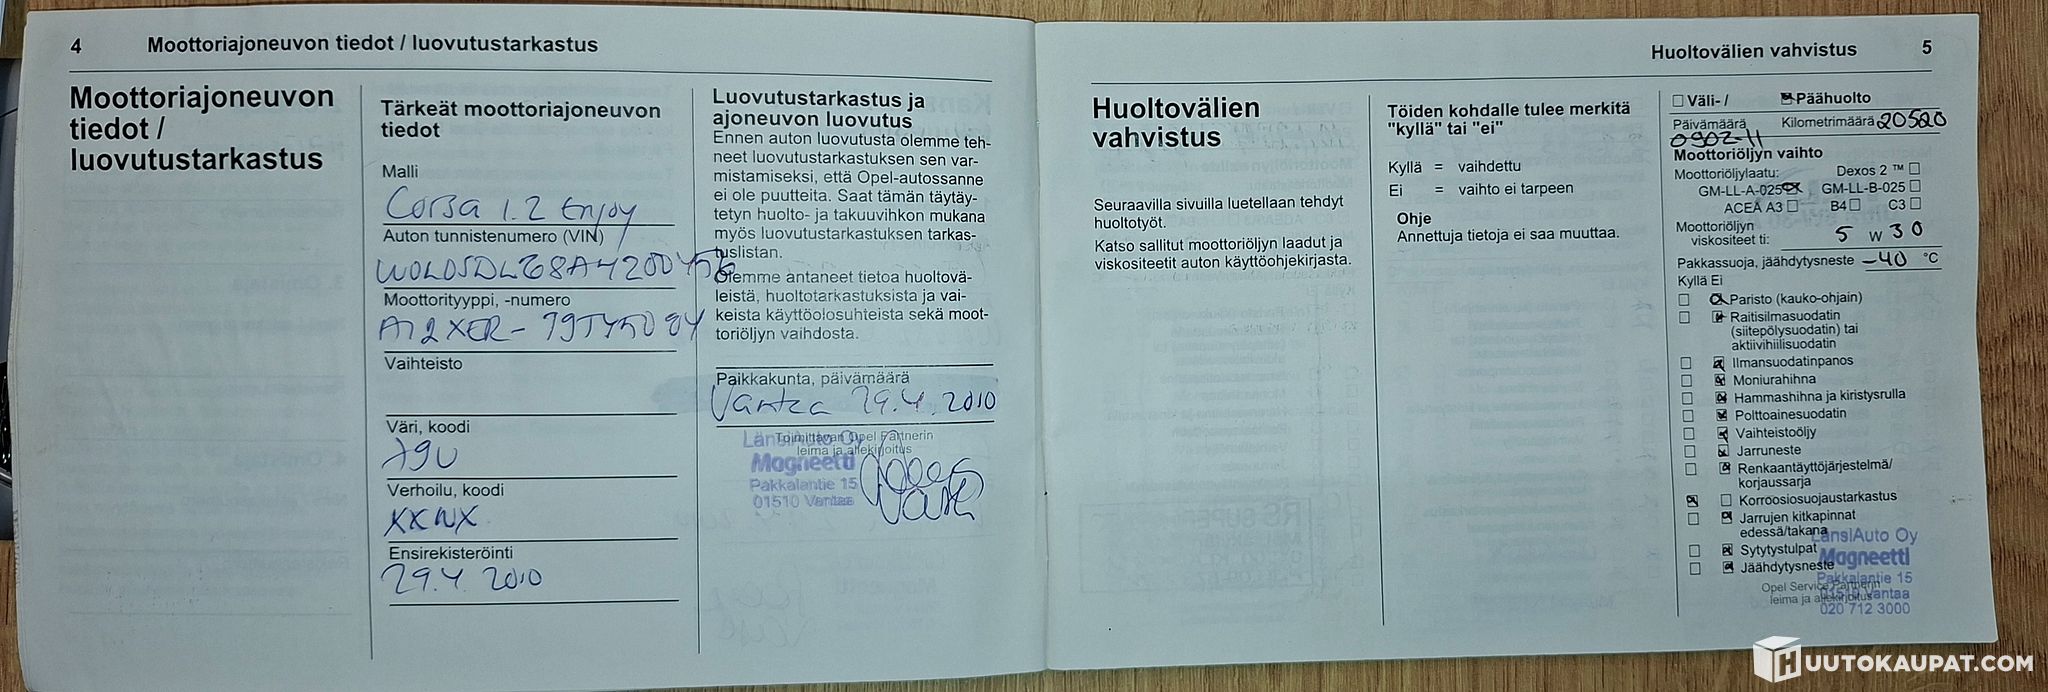 4 Moottoriajoneuvon tiedot / luovutustarkastus
Moottoriajoneuvon
tiedot /
luovutustarkastus
Tärkeät moottoriajoneuvon
tiedot
Malli
Corsa 1.2 Enjoy
Auton tunnistenumero (VIN)
W0L0SDL68A4200456
Moottorityyppi, -numero
A12XER -
Vaihteisto
Väri, koodi
79U
Verhoilu, koodi
XXWX
Ensirekisteröinti
29.4. 2010
Luovutustarkastus ja
ajoneuvon luovutus
Ennen auton luovutusta olemme teh-
neet luovutustarkastuksen sen var-
mistamiseksi, että Opel-autossanne
ei ole puutteita. Saat tämän täytäy-
tetyn huolto- ja takuuvihkon mukana
myös luovutustarkastuksen tarkas-
tuslistan.
Olemme antaneet tietoa huoltovä-
leistä, huoltotarkastuksista ja vai-
keista käyttöolosuhteista sekä moot-
toriöljyn vaihdosta.
Paikkakunta, päivämäärä
Vantaa 29.4.2010
Toimittavan Opel Partnerin
leima ja allekirjoitus
LänsiAuto Oy
Magneetti
Pakkalantie 15
01510 Vantaa
Huoltovälien vahvistus 5
Huoltovälien
vahvistus
Seuraavilla sivuilla luetellaan tehdyt
huoltotyöt.
Katso sallitut moottoriöljyn laadut ja
viskositeetit auton käyttöohjekirjasta.
Töiden kohdalle tulee merkitä
"kyllä" tai "ei"
Kyllä = vaihdettu
Ei = vaihto ei tarpeen
Ohje
Annettuja tietoja ei saa muuttaa.
Väli- / Päähuolto
Päivämäärä Kilometrimäärä 20520
0902-11
Moottoriöljyn vaihto
Moottoriöljylaatu: Dexos 2 ™
GM-LL-A-025 GM-LL-B-025
ACEA A3 B4 C3
Moottoriöljyn
viskositeet ti: 5 W 30
Pakkassuoja, jäähdytysneste -40 °C
Kyllä Ei
Paristo (kauko-ohjain)
Raitisilmasuodatin
(siitepölysuodatin) tai
aktiivihiilisuodatin
Ilmansuodatinpanos
Moniurahihna
Hammashihna ja kiristysrulla
Polttoainesuodatin
Vaihteistoöljy
Jarruneste
Renkaantäyttöjärjestelmä/
korjaussarja
Korroosiosuojaustarkastus
Jarrujen kitkapinnat
edessä/takana
Sytytystulpat
Jäähdytysneste
Opel Service Partnerin
leima ja allekirjoitus
LänsiAuto Oy
Magneetti
Pakkalantie 15
01510 Vantaa
020 712 3000
HUUTOKAUPAT.COM